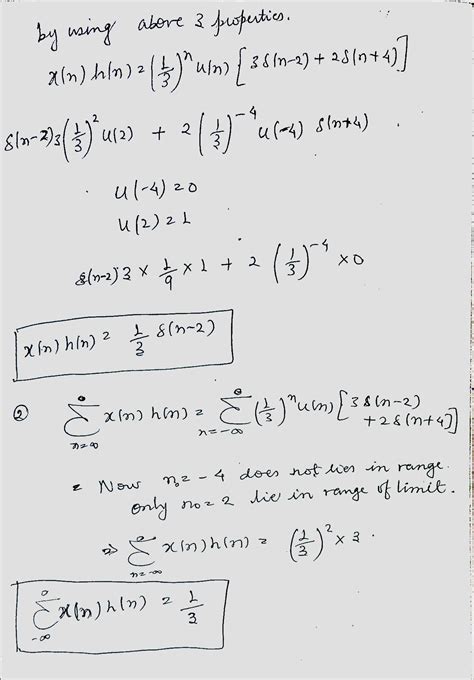 by using above 3 properties.
x(n) h(n) = (1/3)^n u(n) [3δ(n-2) + 2δ(n+4)]
δ(n-2)3(1/3)^2 u(2) + 2(1/3)^-4 u(-4) δ(n+4).
u(-4) = 0
u(2) = 1
δ(n-2)3 × 1/9 × 1 + 2(1/3)^-4 × 0
x(n) h(n) = 1/3 δ(n-2)
② Σ x(n) h(n) = Σ (1/3)^n u(n) [3δ(n-2)
+2δ(n+4)]
n=∞ n=-∞
= Now n0 = -4 does not lies in range.
only n0 = 2 lie in range of limit.
⇒ Σ x(n) h(n) = (1/3)^2 × 3.
n=-∞
Σ x(n) h(n) = 1/3
-∞